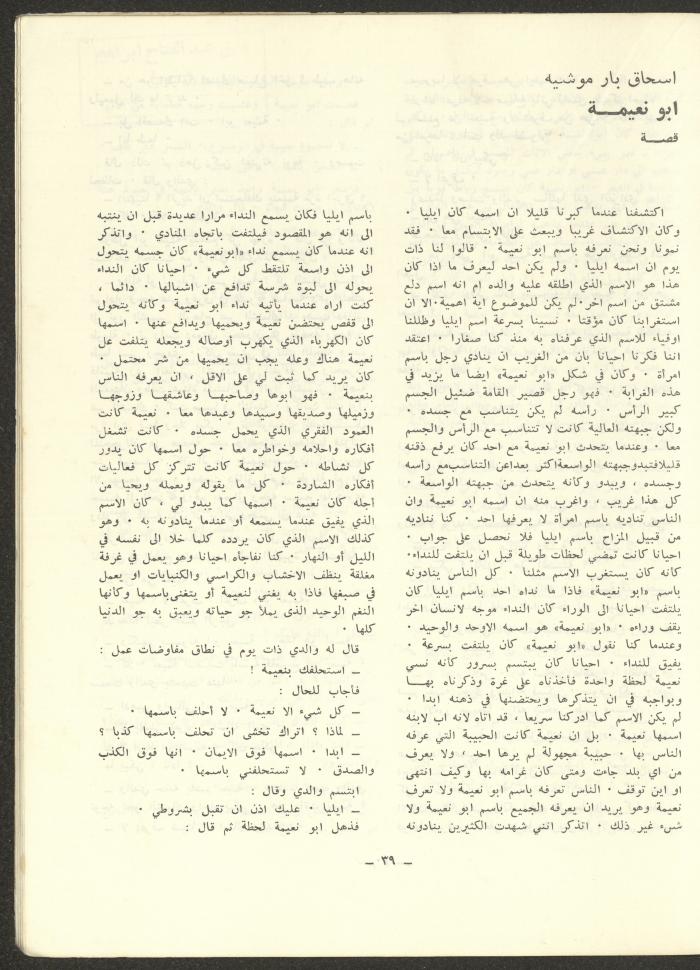 اسحاق بار موشيه
ابو نعيمــــة
قصــة
اكتشفنا عندما كبرنا قليلا ان اسمه كان ايليا ٠
وكان الاكتشاف غريبا ويبعث على الابتسام معا ٠ فقد
نمونا ونحن نعرفه باسم ابو نعيمة ٠ قالوا لنا ذات
يوم ان اسمه ايليا ٠ ولم يكن احد ليعرف ما اذا كان
هذا هو الاسم الذي اطلقه عليه والده ام انه اسم دلع
مشتق من اسم اخر٠لم يكن للموضوع اية اهمية٠الا ان
استغرابنا كان مؤقتا ٠ نسينا بسرعة اسم ايليا وظللنا
اوفياء للاسم الذي عرفناه به منذ كنا صغارا ٠ اعتقد
اننا فكرنا احيانا بان من الغريب ان ينادي رجل باسم
امرأة ٠ وكان في شكل «ابو نعيمة» ايضا ما يزيد في
هذه الغرابة ٠ فهو رجل قصير القامة ضئيل الجسم
كبير الرأس ٠ رأسه لم يكن يتناسب مع جسده ٠
ولكن جبهته العالية كانت لا تتناسب مع الرأس والجسم
معا ٠ وعندما يتحدث ابو نعيمة مع احد كان يرفع ذقنه
قليلافتبدوجبهته الواسعةاكثر بعداعن التناسبمع رأسه
وجسده ، ويبدو وكأنه يتحدث من جبهته الواسعة ٠
كل هذا غريب ، واغرب منه ان اسمه ابو نعيمة وان
الناس تناديه باسم امرأة لا يعرفها احد ٠ كنا نناديه
من قبيل المزاح باسم ايليا فلا نحصل على جواب ٠
احيانا كانت تمضي لحظات طويلة قبل ان يلتفت للنداء٠
كانه كان يستغرب الاسم مثلنا ٠ كل الناس ينادونه
باسم «ابو نعيمة» فاذا ما نداه احد باسم ايليا كان
يلتفت احيانا الى الوراء كان النداء موجه لانسان اخر
يقف وراءه ٠ «ابو نعيمة» هو اسمه الاوحد والوحيد ٠
وعندما كنا نقول «ابو نعيمة» كان يلتفت بسرعة ٠
يفيق للنداء ٠ احيانا كان يبتسم بسرور كأنه نسي
نعيمة لحظة واحدة فأخذناه على غرة وذكرناه بهــا
وبواجبه في ان يتذكرها ويحتضنها في ذهنه ابدا ٠
لم يكن الاسم كما ادركنا سريعا ، قد اتاه لانه اب لابنه
اسمها نعيمة ٠ بل ان نعيمة كانت الحبيبة التي عرفه
الناس بها ٠ حبيبة مجهولة لم يرها احد ، ولا يعرف
من اي بلد جاءت ومتى كان غرامه بها وكيف انتهى
او اين توقف ٠ الناس تعرفه باسم ابو نعيمة ولا تعرف
نعيمة وهو يريد ان يعرفه الجميع باسم ابو نعيمة ولا
شىء غير ذلك ٠ اتذكر انني شهدت الكثيرين ينادونه
باسم ايليا فكان يسمع النداء مرارا عديدة قبل ان ينتبه
الى انه هو المقصود فيلتفت باتجاه المنادي ٠ واتذكر
انه عندما كان يسمع نداء «ابونعيمة» كان جسمه يتحول
الى اذن واسعة تلتقط كل شيء ٠ احيانا كان النداء
يحوله الى لبوة شرسة تدافع عن اشبالها ٠ دائما ،
كنت اراه عندما يأتيه نداء ابو نعيمة وكأنه يتحول
الى قفص يحتضن نعيمة ويحميها ويدافع عنها ٠ اسمها
كان الكهرباء الذي يكهرب أوصاله ويجعله يتلفت عل
نعيمة هناك وعله يجب ان يحميها من شر محتمل ٠
كان يريد كما ثبت لي على الاقل ، ان يعرفه الناس
بنعيمة ٠ فهو ابوها وصاحبهــا وعاشقهــا وزوجهــا
وزميلها وصديقها وسيدها وعبدها معا ٠ نعيمة كانت
العمود الفقري الذي يحمل جسده ٠ كانت تشغل
أفكاره واحلامه وخواطره معا ٠ حول اسمها كان يدور
كل نشاطه ٠ حول نعيمة كانت تتركز كل فعاليات
أفكاره الشاردة ٠ كل ما يقوله ويعمله ويحيا من
أجله كان نعيمة ٠ اسمها كما يبدو لي ، كان الاسم
الذي يفيق عندما يسمعه أو عندما ينادونه به ٠ وهو
كذلك الاسم الذي كان يردده كلما خلا الى نفسه في
الليل أو النهار ٠ كنا نفاجاه احيانا وهو يعمل في غرفة
مغلقة ينظف الاخشاب والكراسي والكنبايات او يعمل
في صبغها فاذا به يغني لنعيمة أو يتغنىباسمها وكأنها
النغم الوحيد الذى يملأ جو حياته ويعبق به جو الدنيا
كلها ٠
قال له والدي ذات يوم في نطاق مفاوضات عمل :
ــ استحلفك بنعيمة !
فأجاب للحال :
ــ كل شيء الا نعيمة ٠ لا أحلف باسمها ٠
ــ لماذا ؟ اتراك تخشى ان تحلف باسمها كذبا ؟
ــ ابدا ٠ اسمها فوق الايمان ٠ انها فوق الكذب
والصدق ٠ لا تستحلفني باسمها ٠
ابتسم والدي وقال :
ــ ايليا ٠ عليك اذن ان تقبل بشروطي ٠
فذهل ابو نعيمة لحظة ثم قال :
ــ ٣٩ ــ